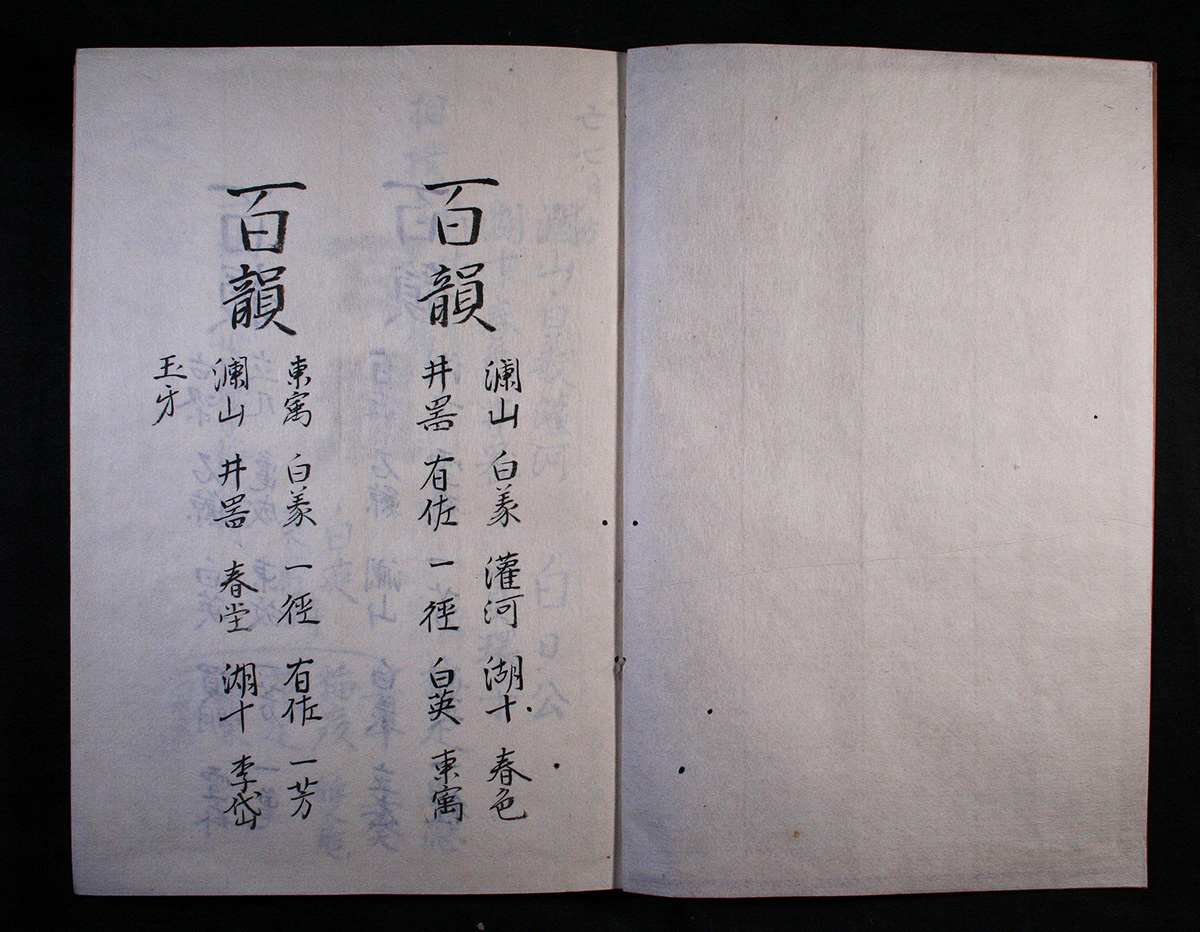 百韻
瀾山 白羲 灌河 湖十 春色
井畧 有佐 一徑 白英 東寓
百韻
東寓 白羲 一徑 有佐 一芳
瀾山 井畧 春堂 湖十 李岱
玉牙